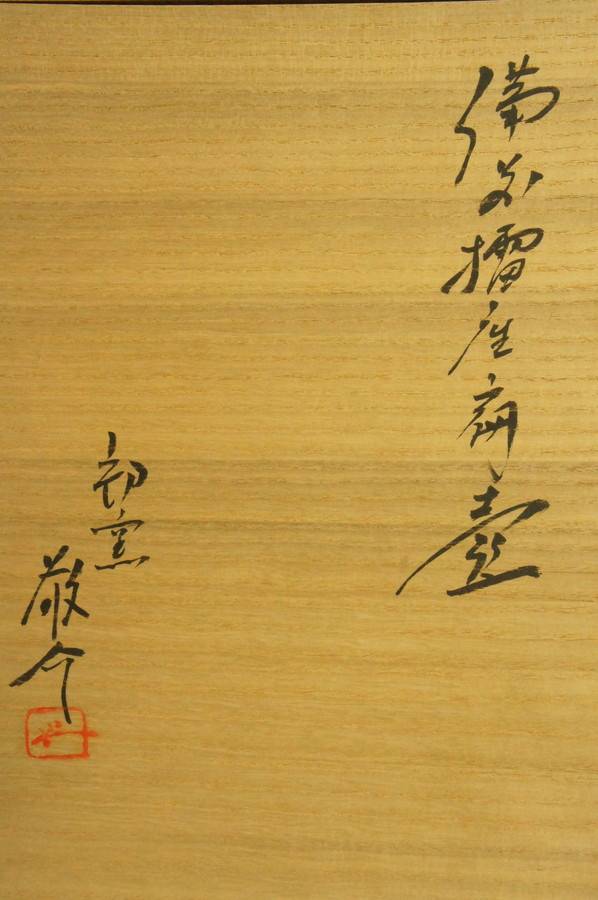 備前擂座扁壷
初窯
敬介